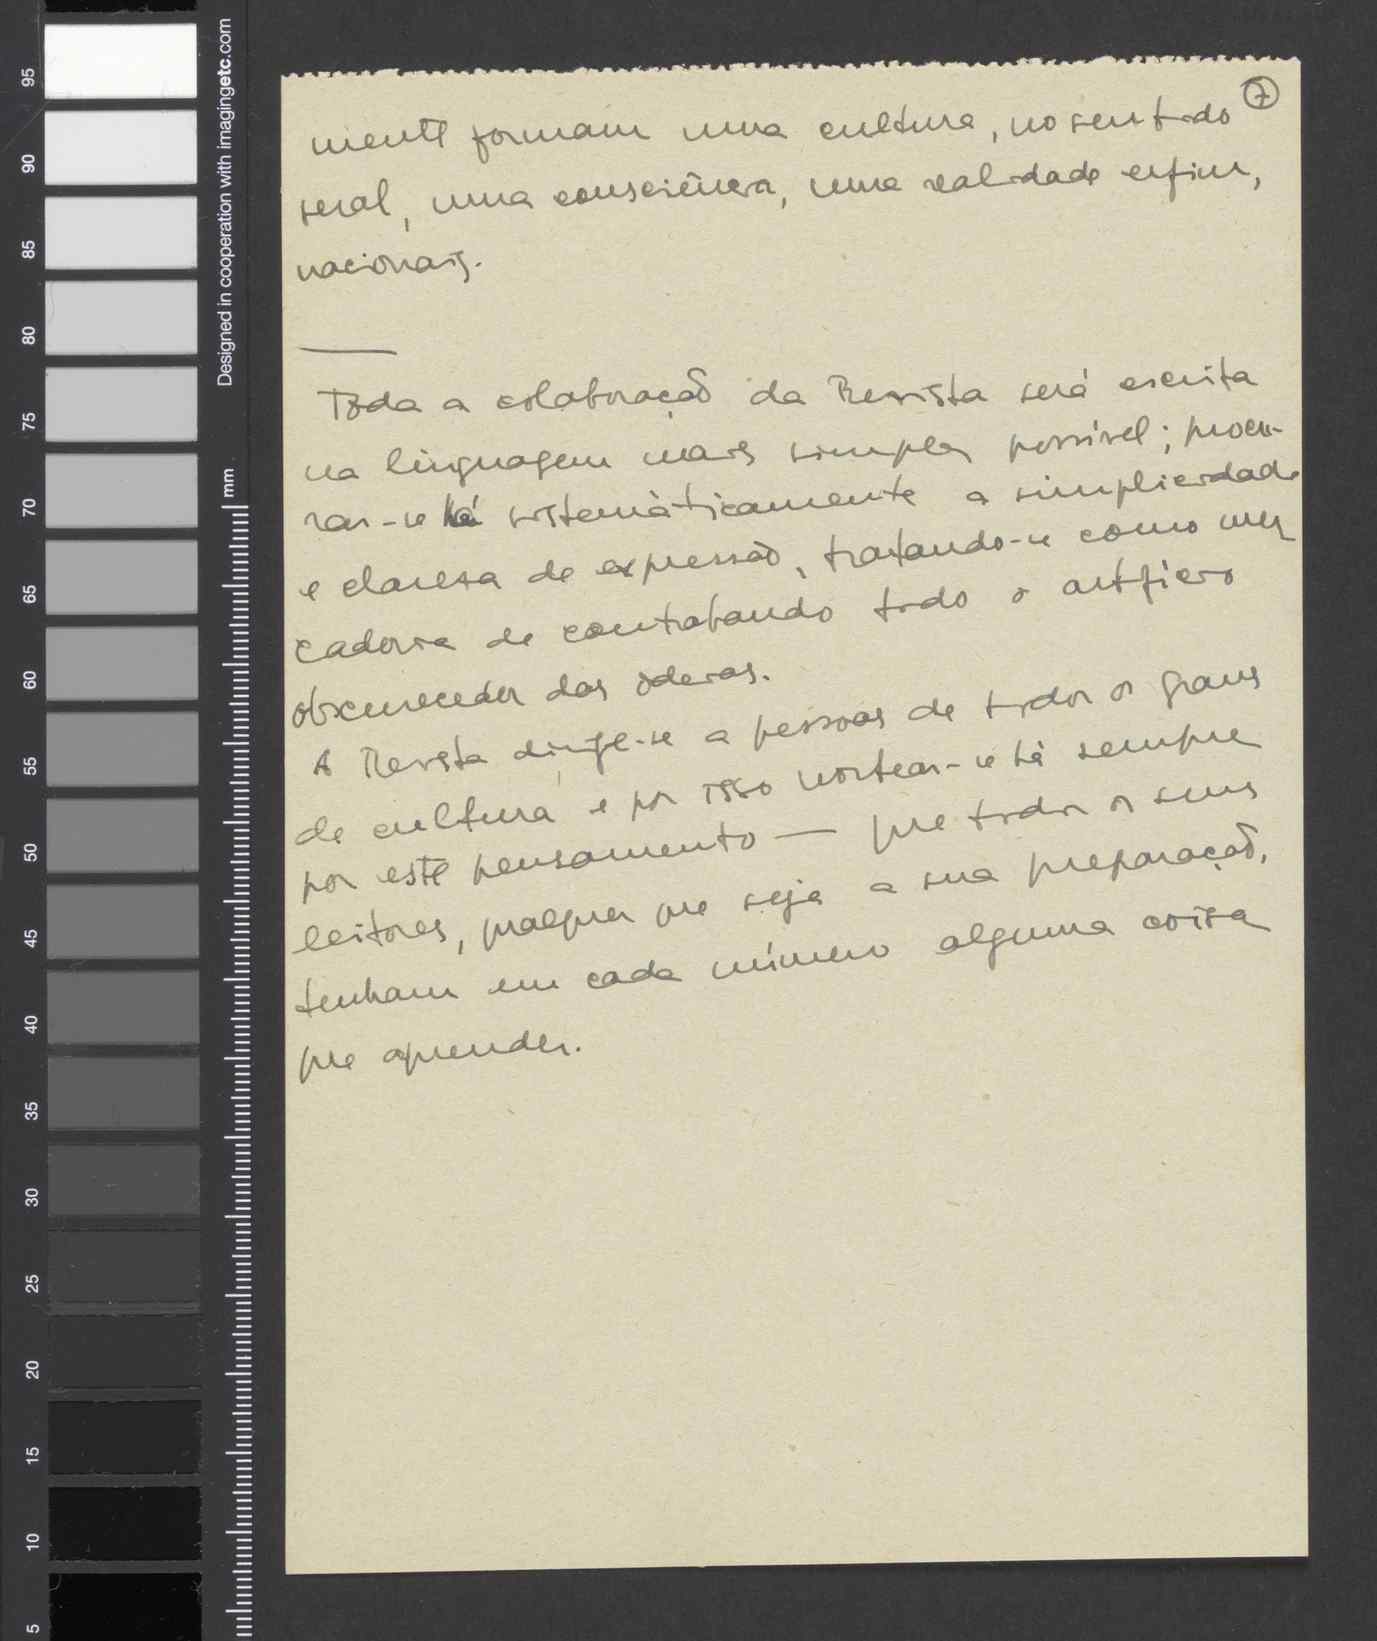 7
mente formam uma cultura, no sentido
geral, uma consciência, uma realidade enfim,
nacionais.
Tôda a colaboração da Revista será escrita
na linguagem mais simples possível; procu-
rar-se há sistemàticamente a simplicidade
e claresa de expressão, tratando-se como mer
cadoria de contrabando todo o artifício
obscurecedor das ideias.
A Revista dirige-se a pessoas de todos os graus
de cultura e por isso nortear-se há sempre
por este pensamento — que todos os seus
leitores, qualquer que seja a sua preparação,
tenham em cada número alguma coisa
que aprender.
Designed in cooperation with imagingetc.com
mm
95
90
85
80
75
70
65
60
55
50
45
40
35
30
25
20
15
10
5